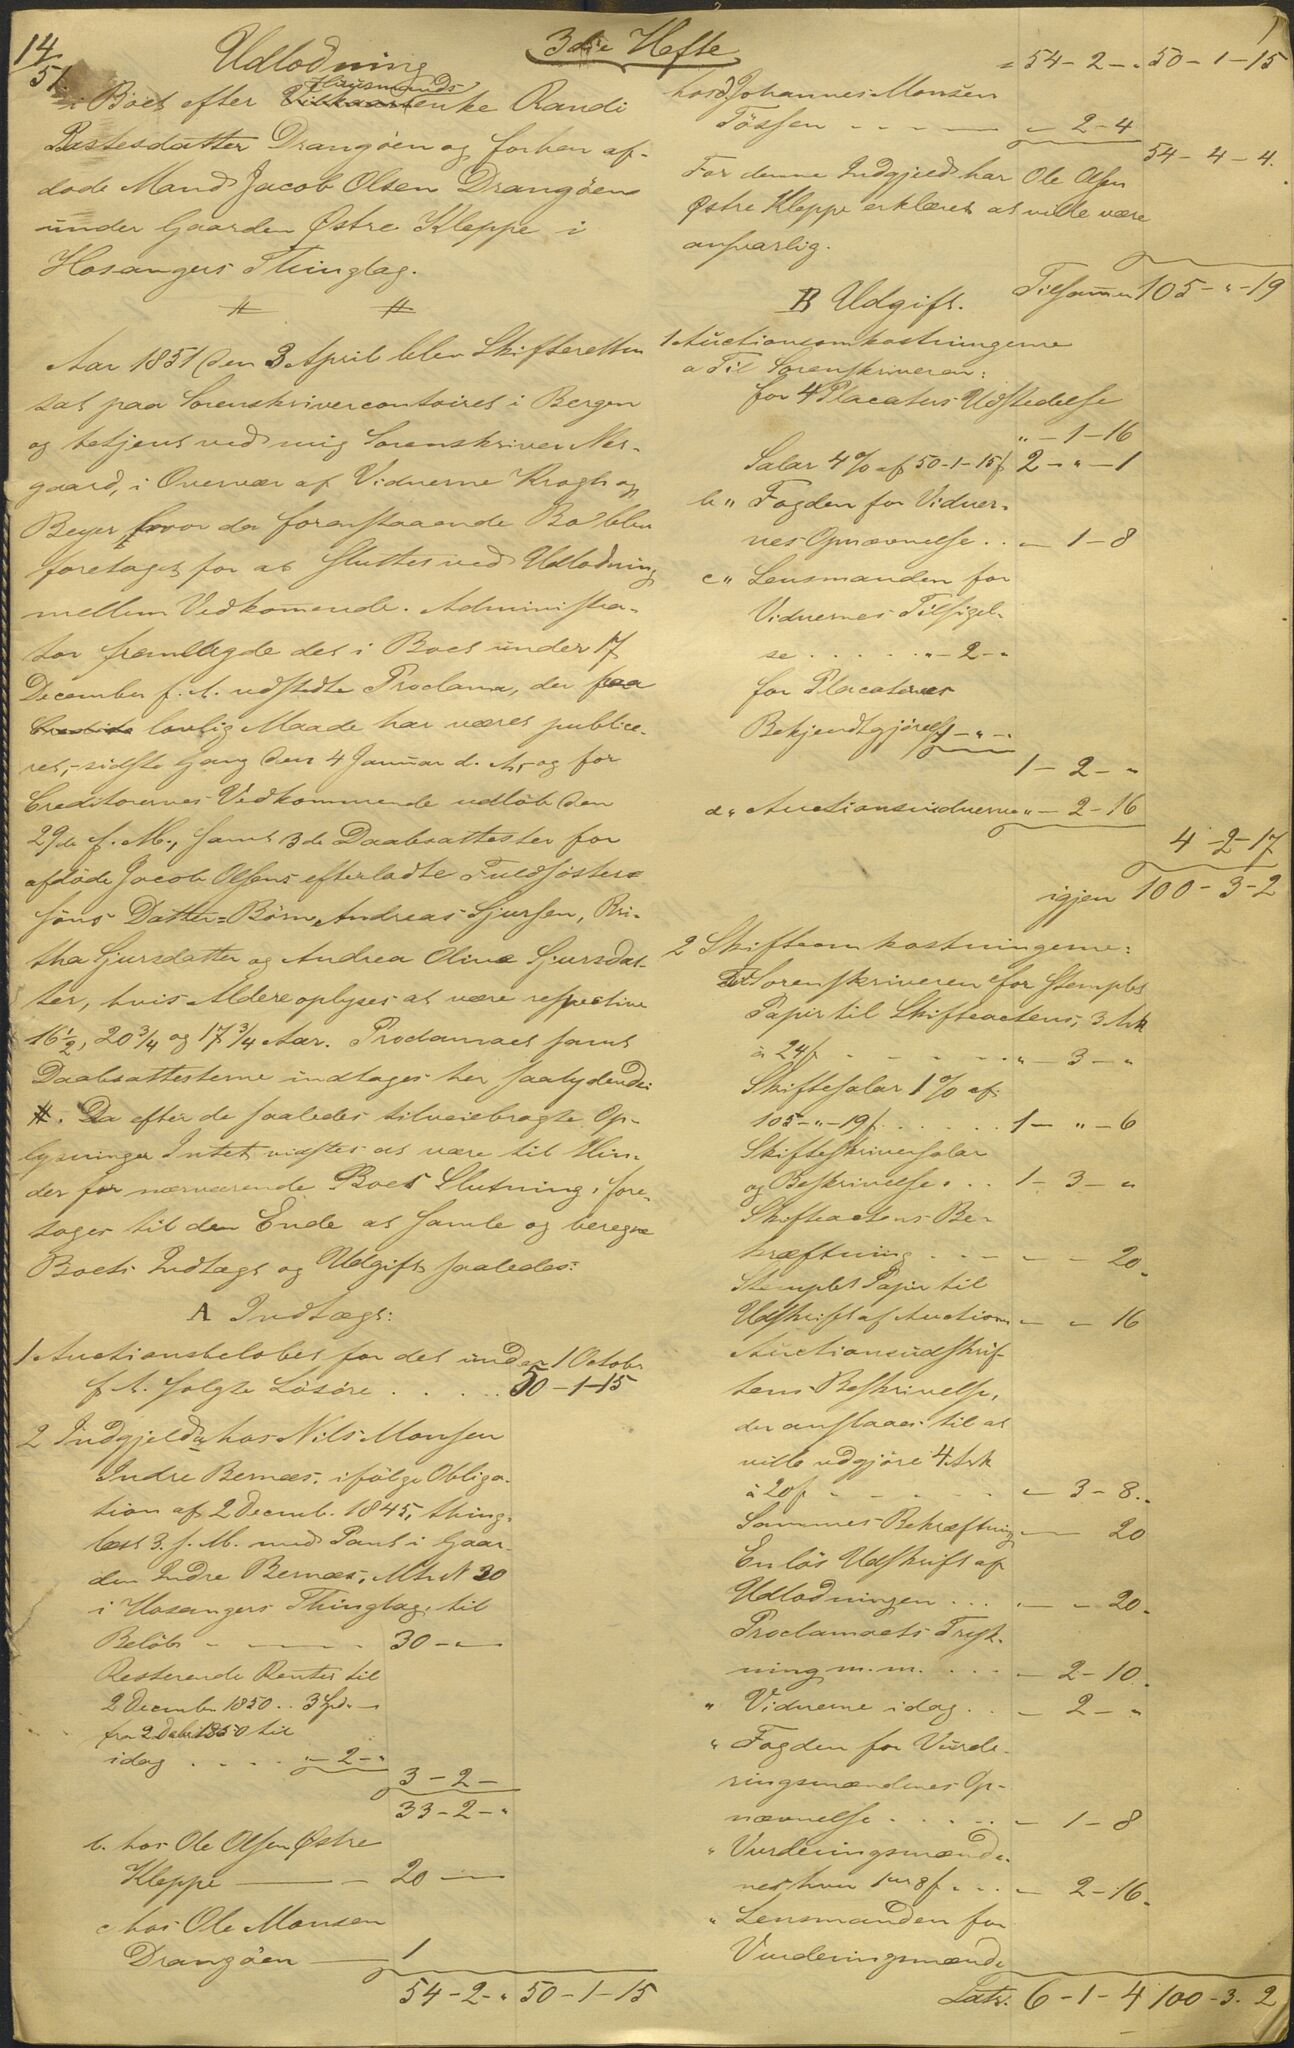 3die Hefte
1
14/51.
Udlodning
i Boet efter Huusmandsenke Randi
Rastesdatter Drangöen og forhen af-
døde Mand Jacob Olsen Drangöen
under Gaarden Østre Kleppe i
Hosangers Thinglag.
Aar 1851 den 3 April blev Skifteretten
sat paa Sorenskrivercontoiret i Bergen
og betjent ved mig Sorenskriver Ner-
gaard, i Overvær af Vidnerne Krogh og
Beyer, hvor da foranstaaende Bo blev
foretaget for at sluttes ved Udlodning
mellem Vedkommende. Administra-
tor fremlagde det i Boet under 17
December f. A. udstedte Proclama, der paa
lovlig Maade har været publice-
ret, sidste Gang den 4 Januar d. A, og for
Creditorernes Vedkommende udløb den
29de f. M., samt 3de Daabsattester for
afdøde Jacob Olsens efterladte Fuldsøster-
söns Datter-Børn Andreas Sjursen, Bri-
tha Sjursdatter og Andrea Olina Sjursdat-
ter, hvis Aldere oplyses at være respective
16½, 20¾ og 17¾ Aar. Proclamaet samt
Daabsattesterne indtages her saalydende:
#. Da efter de saaledes tilveiebragte Op-
lysninger Intet vidstes at være til Hin-
der for nærværende Boes Slutning, fore-
tages til den Ende at samle og beregne
Boets Indtægt og Udgift saaledes:
A Indtægt:
1 Auctionsbeløbet for det under 1 Octobr
f. A. solgte Lösöre . . . . . 50-1-15
2 Indgjeld a, hos Nils Monsen
Indre Bernæs, ifölge Obliga-
tion af 2 Decemb. 1845, thing-
læst 3. f. M. med Pant i Gaar-
den Indre Bernæs, Mtr N 30
i Hosangers Thinglag, til
Beløb - - - 30-"-
Resterende Renter til
2 December 1850 . . 3 Spd -
fra 2 Decbr 1850 til
idag . . . . "-2-"
3-2-
33-2-"
b. hos Ole Olsen Østre
Kleppe - 20 -
c hos Ole Monsen
Drangöen - 1
54-2-" 50-1-15
" 54-2-" 50-1-15
hos d, Johannes Monsen
Tössen - - - - 2-4
54-4-4.
For denne Indgjeld har Ole Olsen
Østre Kleppe erklæret at ville være
ansvarlig.
Tilsammen 105-"-19
B Udgift.
1 Auctionsomkostningerne
a Til Sorenskriveren:
for 4 Placaters Udstedelse
"-1-16
Salar 4% af 50-1-15 f 2-"-1
b " Fogden for Vidner-
nes Opnævnelse . . - 1-8
c " Lensmanden for
Vidnernes Tilsigel-
se . . . . . "-2-"
for Placaternes
Bekjendtgjørelse 1-"-"
1-2-"
d " Auctionsvidnerne "-2-16
4-2-17
igjen 100-3-2
2 Skifteomkostningerne:
Til Sorenskriveren for stemplet
Papir til Skifteactens, 3 Ark
à 24 f - - - - "-3-"
Skiftesalar 1% af
105-"-19 f. . . . . . 1-"-6
Skifteskriversalar
og Beskrivelse . . . 1-3-"
Skifteactens Be-
kræftning . . - - - 20
Stemplet Papir til
Udskrift af Auction - - 16
Auctionsudskrif-
tens Beskrivelse,
der anslaaes til at
ville udgjöre 4 Ark
à 20 f - - - - - 3-8.
Sammes Bekræftning - 20
En lös Udskrift af
Udlodningen . . . - - 20
Proclamaets Tryk-
ning m. m. . . . - 2-10
" Vidnerne idag . . - 2-"
" Fogden for Vurde-
ringsmændenes Op-
nævnelse . . . . . - 1-8
" Vurderingsmænde-
nes hver 1 8 f . . . - 2-16
" Lensmanden for
Vurderingsmænde
Latr. 6-1-4 100-3-2